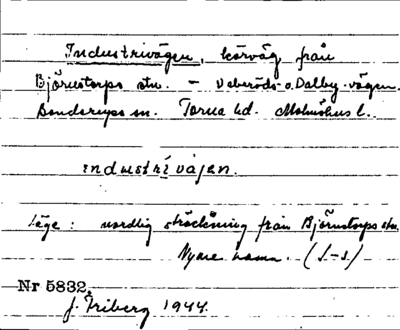 Industrivägen, körväg från
Björnstorps stn. – Veberöds- o. Dalby-vägen.
Bonderups sn. Torna hd. Malmöhus l.
industrivájen.
Läge: nordlig sträckning från Björnstorps stn.
Nyare namn. (S-s)
Nr 5832.
J. Friberg 1944.